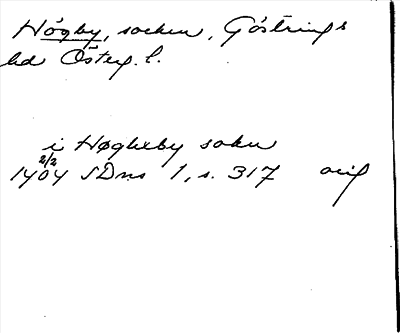 Högby, socken, Göstrings
hd Österg. l.
i Høgheby sokn
2/2
1404 SDns 1, s. 317 orig